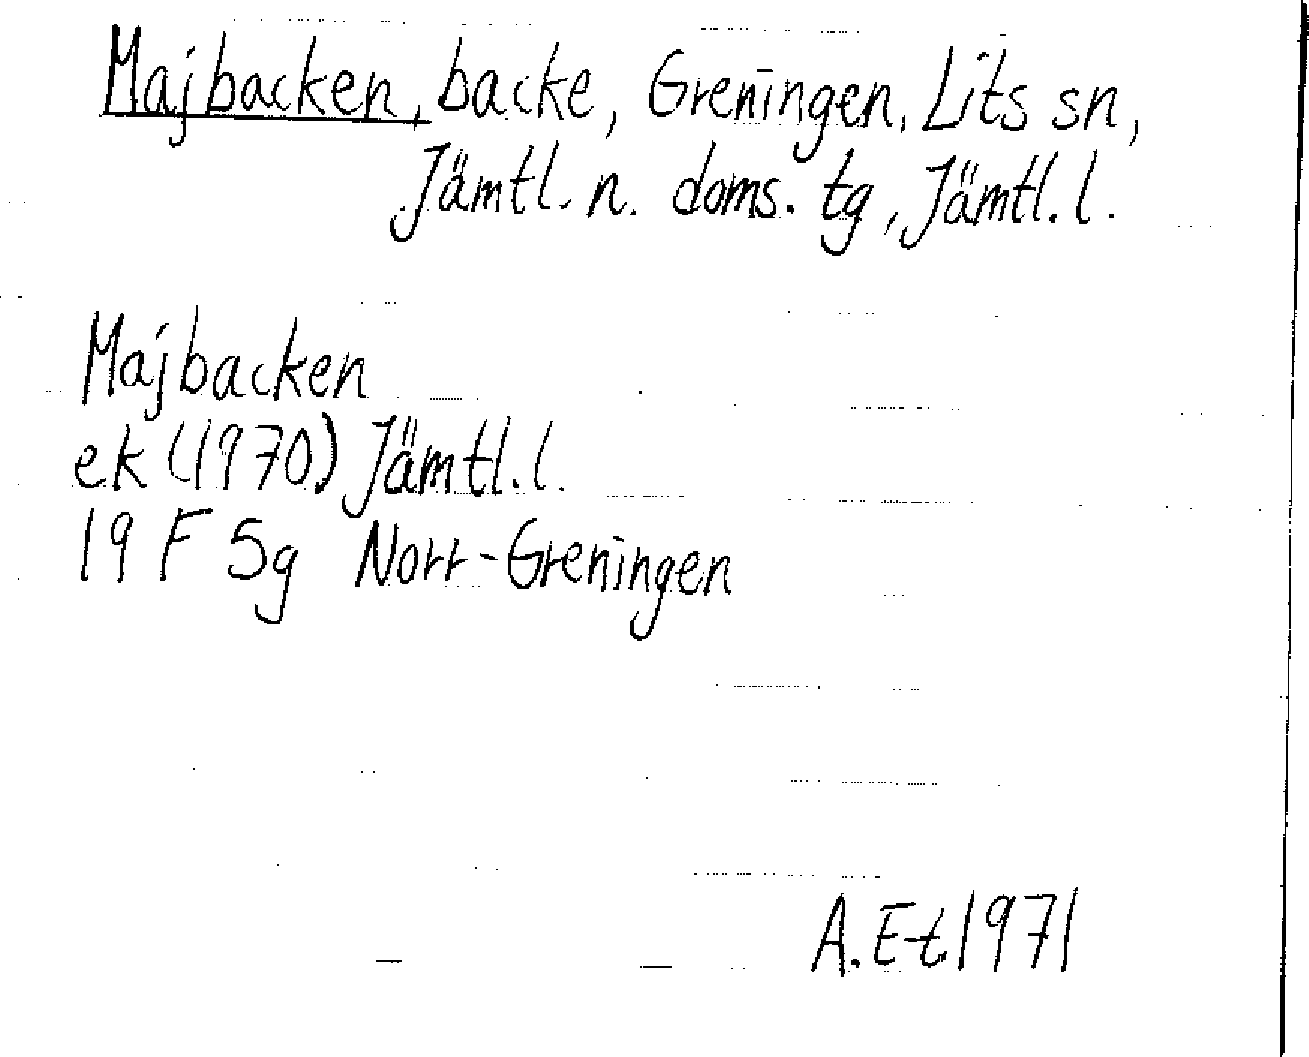 Majbacken, backe, Greningen, Lits sn,
Jämtl. n. doms. tg, Jämtl. l.
Majbacken
ek (1970) Jämtl. l.
19 F 5g Norr-Greningen
A. E-t 1971